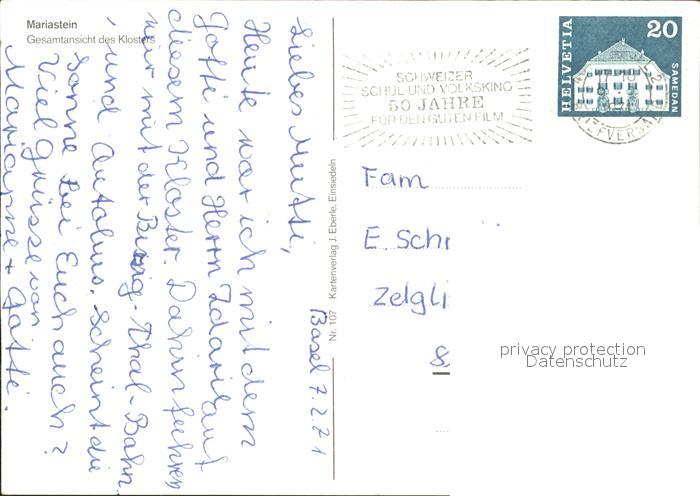 Mariastein
Gesamtansicht des Klosters
Basel 7.2.71
Liebes Mutti,
Heute war ich mit dem
Gotti und Herrn auf
diesem Kloster. Dahin fuhren
wir mit der Birsig-Thal-Bahn
, und Autobus. Scheint die
Sonne bei Euch auch?
Viel Grüsse von
Marianne + Gotti.
Nr. 107 Kartenverlag J. Eberle, Einsiedeln
SCHWEIZER
SCHUL-UND VOLKSKINO
50 JAHRE
FÜR DEN GUTEN FILM
HELVETIA
20
SAMEDAN
BRIEFVERSAND
Fam
E. Schr
Zelgli
8
privacy protection
Datenschutz